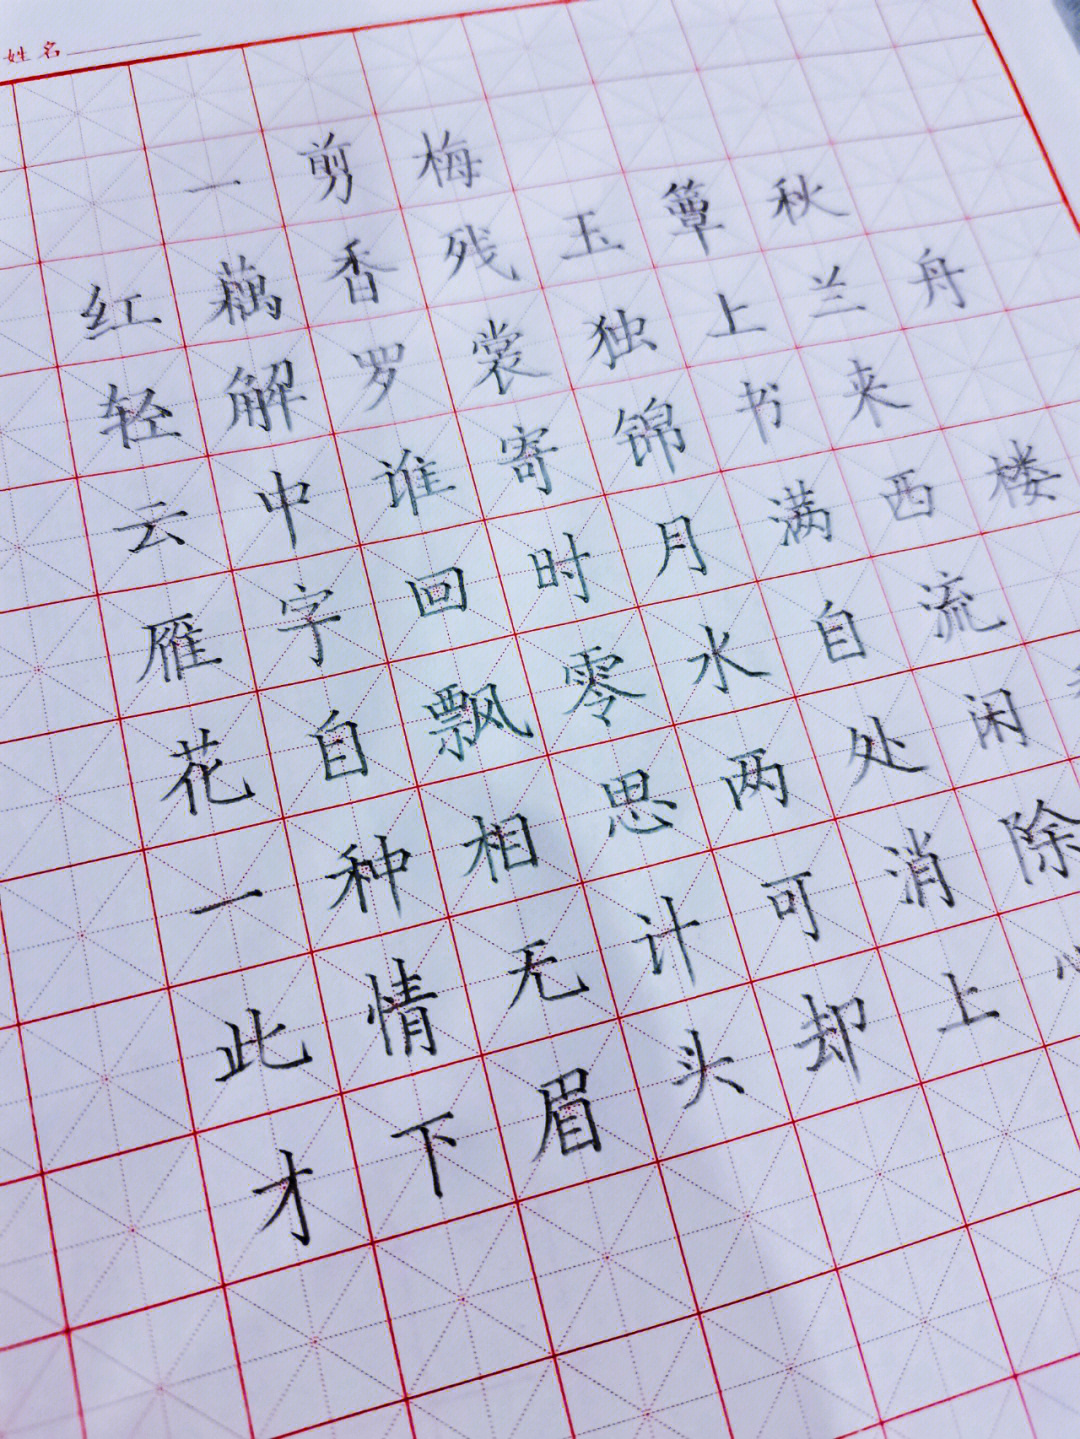 姓名
一剪梅
红藕香残玉簟秋
轻解罗裳独上兰舟
云中谁寄锦书来
雁字回时月满西楼
花自飘零水自流
一种相思两处闲
此情无计可消除
才下眉头却上